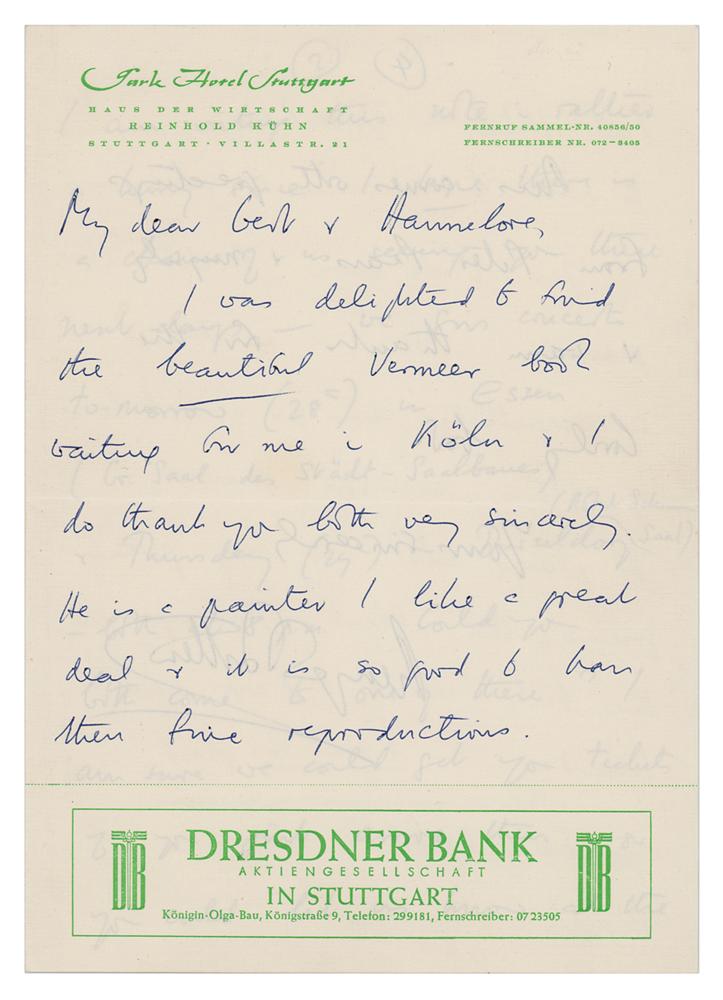 Park Hotel Stuttgart
HAUS DER WIRTSCHAFT
REINHOLD KÜHN
STUTTGART · VILLASTR. 21
FERNRUF SAMMEL-NR. 40856/50
FERNSCHREIBER NR. 072-3405
My dear Gert & Hannelore,
I was delighted to find
the beautiful Vermeer book
waiting for me in Köln & I
do thank you both very sincerely.
He is a painter I like a great
deal & it is so good to have
these fine reproductions.
DRESDNER BANK
AKTIENGESELLSCHAFT
IN STUTTGART
Königin-Olga-Bau, Königstraße 9, Telefon: 299181, Fernschreiber: 07 23505
DB
DB